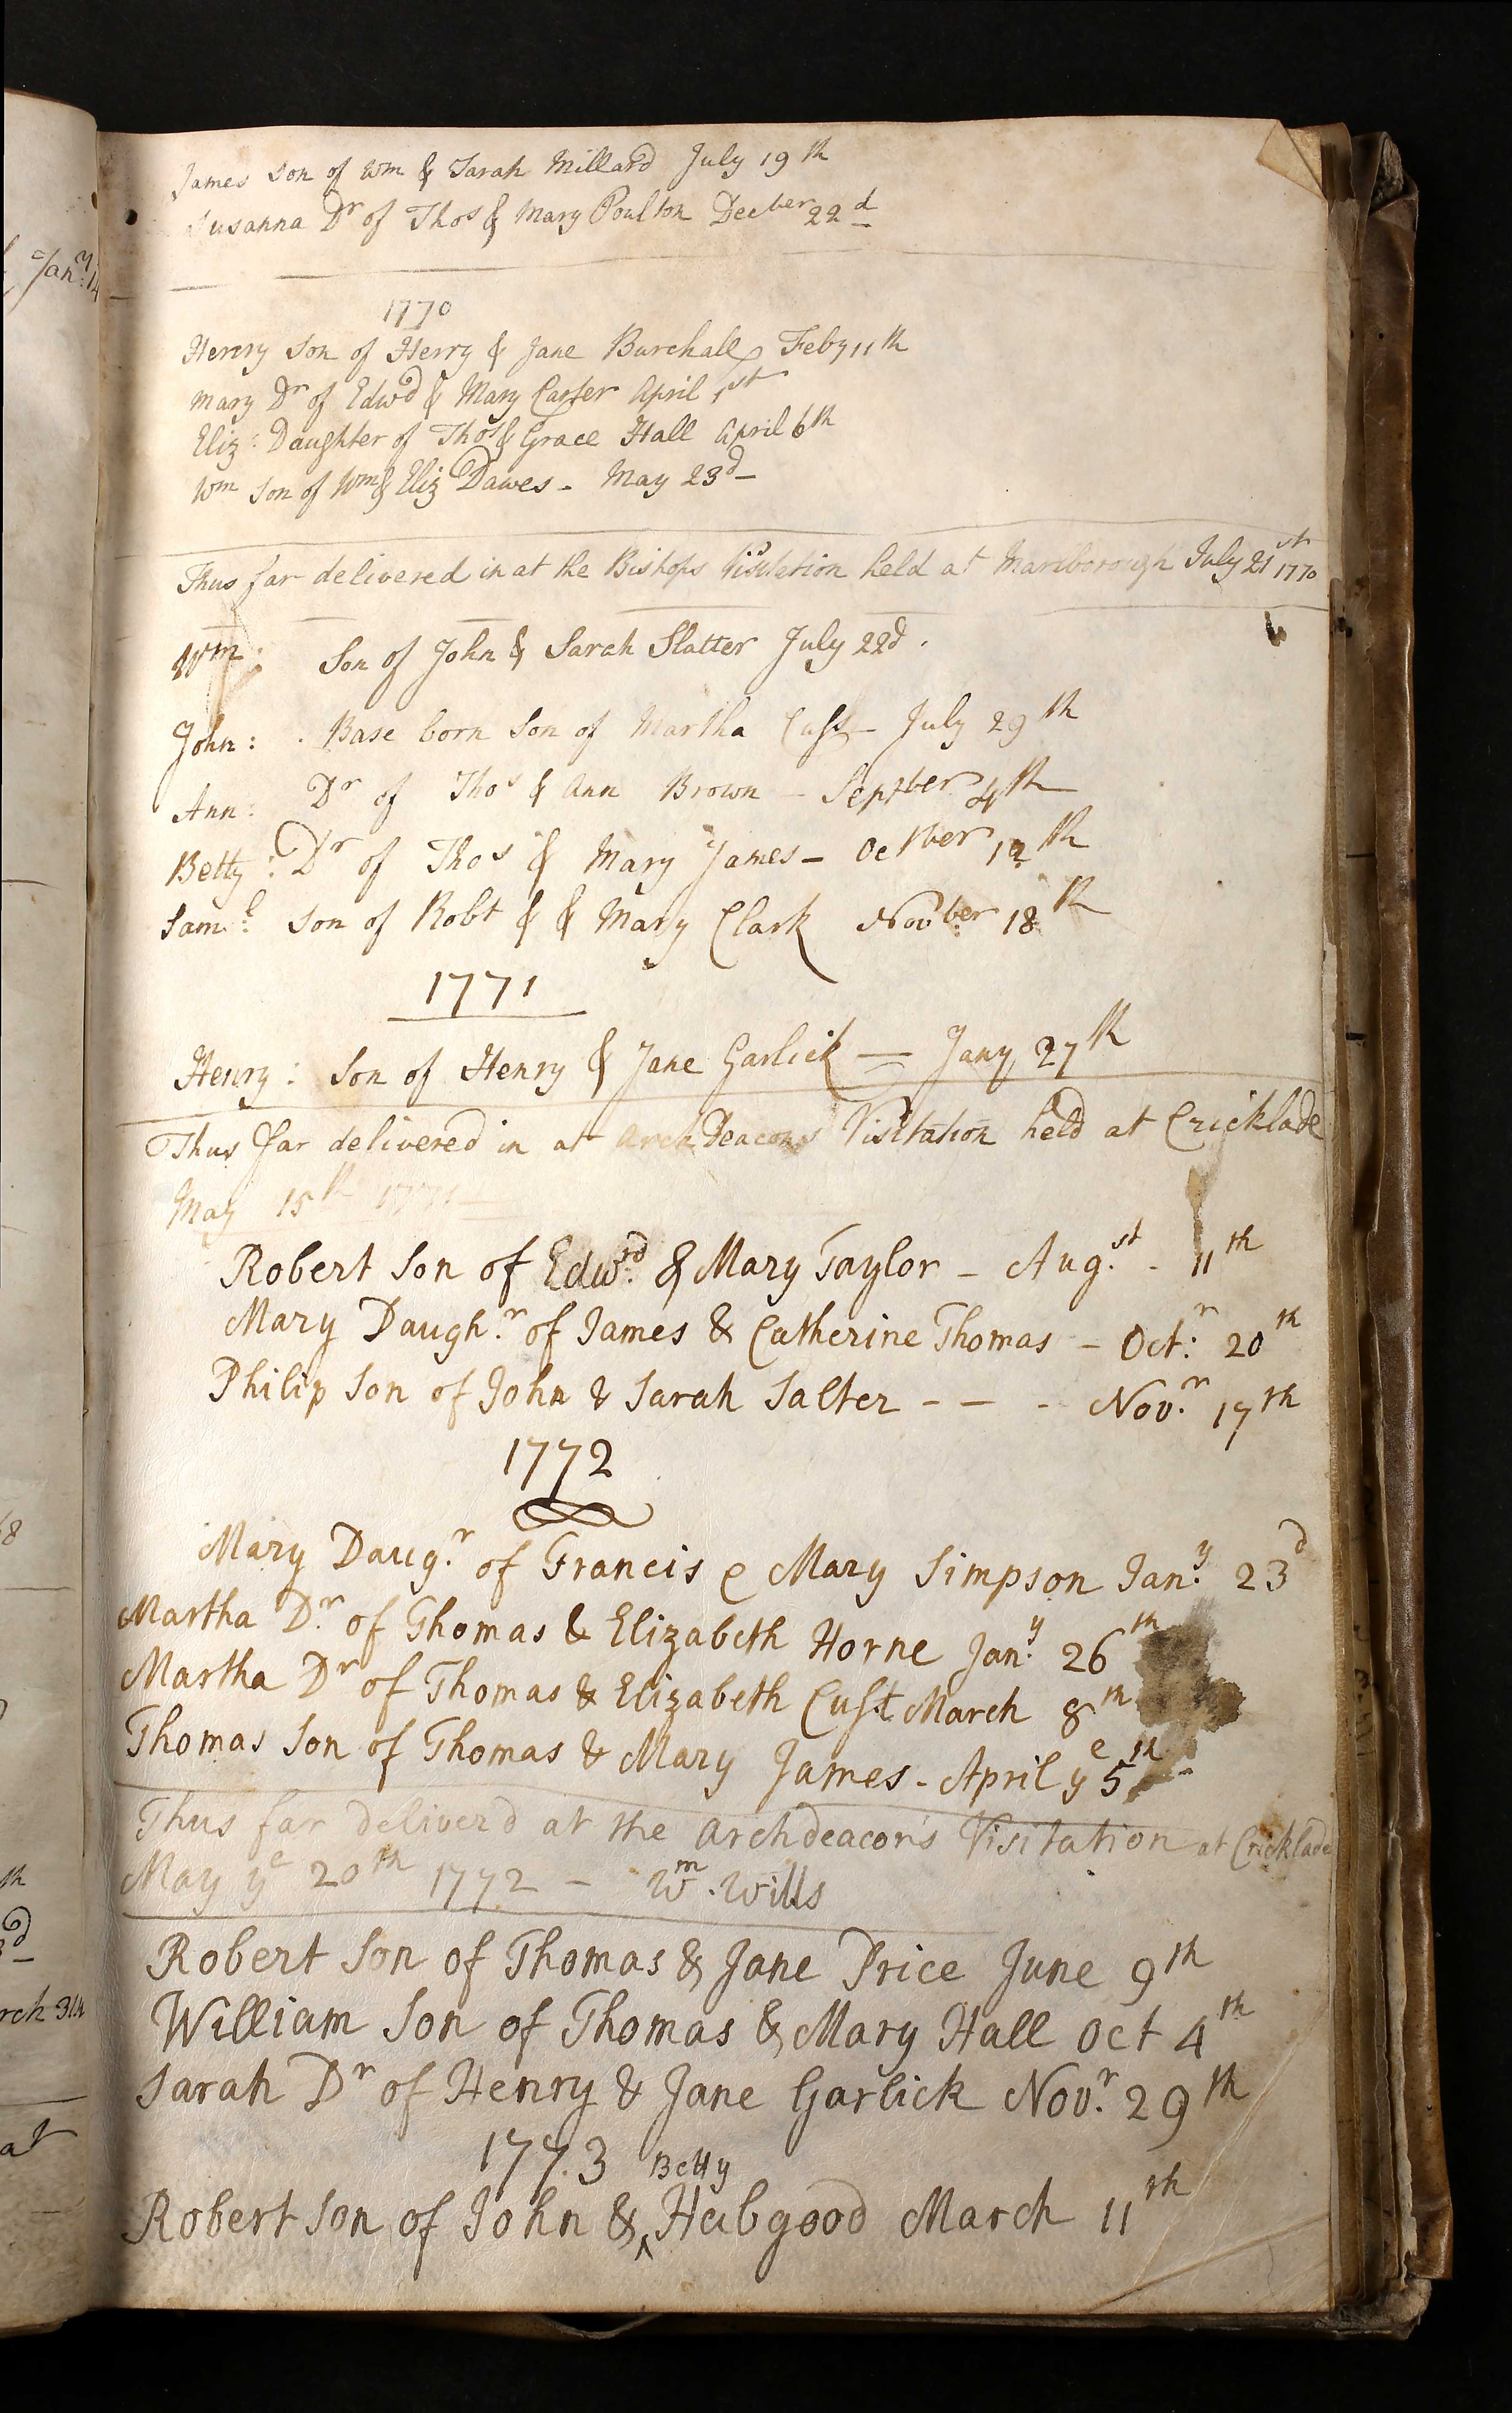 James Son of Wm & Sarah Millard July 19th
Susanna Dr of Thos & Mary Poulton Decber 22d
1770
Henry Son of Henry & Jane Burchall Feby 11th
Mary Dr of Edwd & Mary Carter April 1st
Eliz: Daughter of Thos & Grace Hall April 6th
Wm Son of Wm & Eliz Dawes - May 23d -
Thus far delivered in at the Bishops Visitation held at Marlborough July 21st 1770
Wm: Son of John & Sarah Slatter July 22d.
John: Base born Son of Martha Cuss - July 29th
Ann: Dr of Thos & Ann Brown - Septber 4th
Betty: Dr of Thos & Mary James - Octber 12th
Saml: Son of Robt & & Mary Clark Novber 18th
1771
Henry: Son of Henry & Jane Garlick — Jany 27th
Thus far delivered in at ArchDeacons Visitation held at Cricklade
May 15th 1771
Robert Son of Edwrd & Mary Taylor - Augst - 11th
Mary Daughr of James & Catherine Thomas - Octr 20th
Philip Son of John & Sarah Salter - - - Novr 17th
1772
Mary Daugr of Francis & Mary Simpson Jany 23d
Martha Dr of Thomas & Elizabeth Horne Jany 26th
Martha Dr of Thomas & Elizabeth Cust March 8th
Thomas Son of Thomas & Mary James - April ye 5th
Thus far deliverd at the Archdeacon's Visitation at Cricklade
May ye 20th 1772 - Wm. Wills
Robert Son of Thomas & Jane Price June 9th
William Son of Thomas & Mary Hall Oct 4th
Sarah Dr of Henry & Jane Garlick Novr 29th
1773 Betty
Robert Son of John & ^ Habgood March 11th